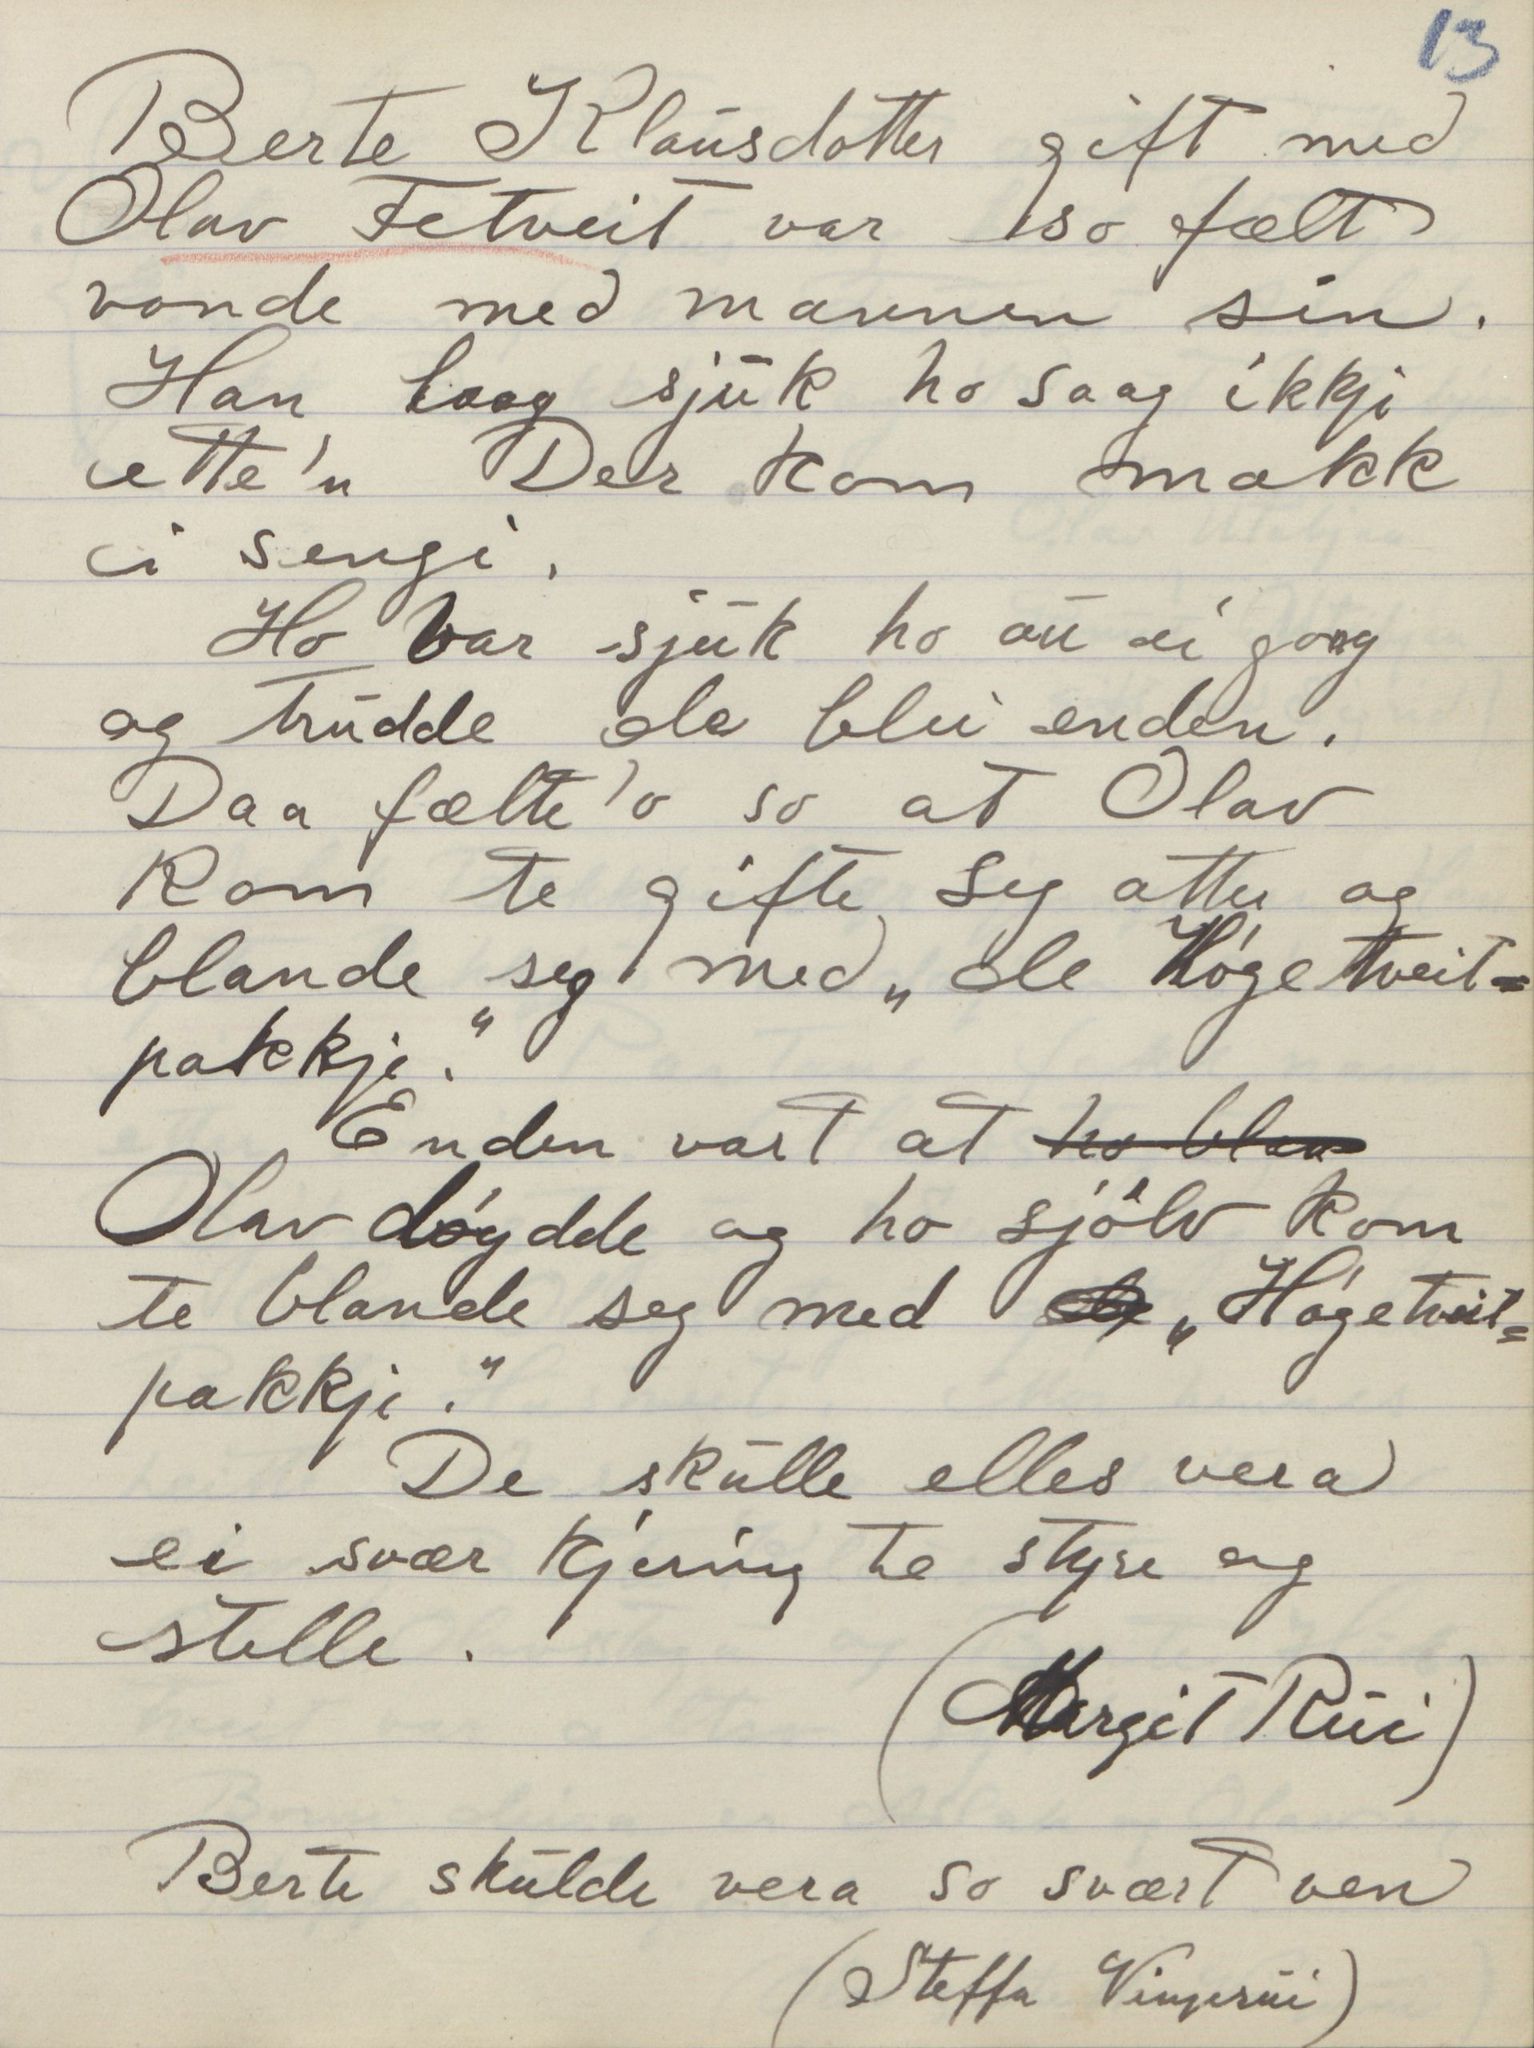 13
Berte Klausdotter gift med
Olav Fetveit var so fælt
vonde med mannen sin.
Han laag sjuk ho saag ikkji
ette'n Der kom makk
i sengi.
Ho var sjuk ho au ei gong
og trudde de blei enden.
Daa fælte'o so at Olav
kom te gifte seg atter og
blande seg med „de Høgetveit=
pakkje."
Enden vart at ho blan
Olav døydde og ho sjølv kom
te blande seg med de „Høgetveit=
pakkji."
De skulle elles vera
ei svær kjering te styre og
stelle.
(Margit Rui)
Berte skulde vera so svært ven
(Steffa Vingerui)